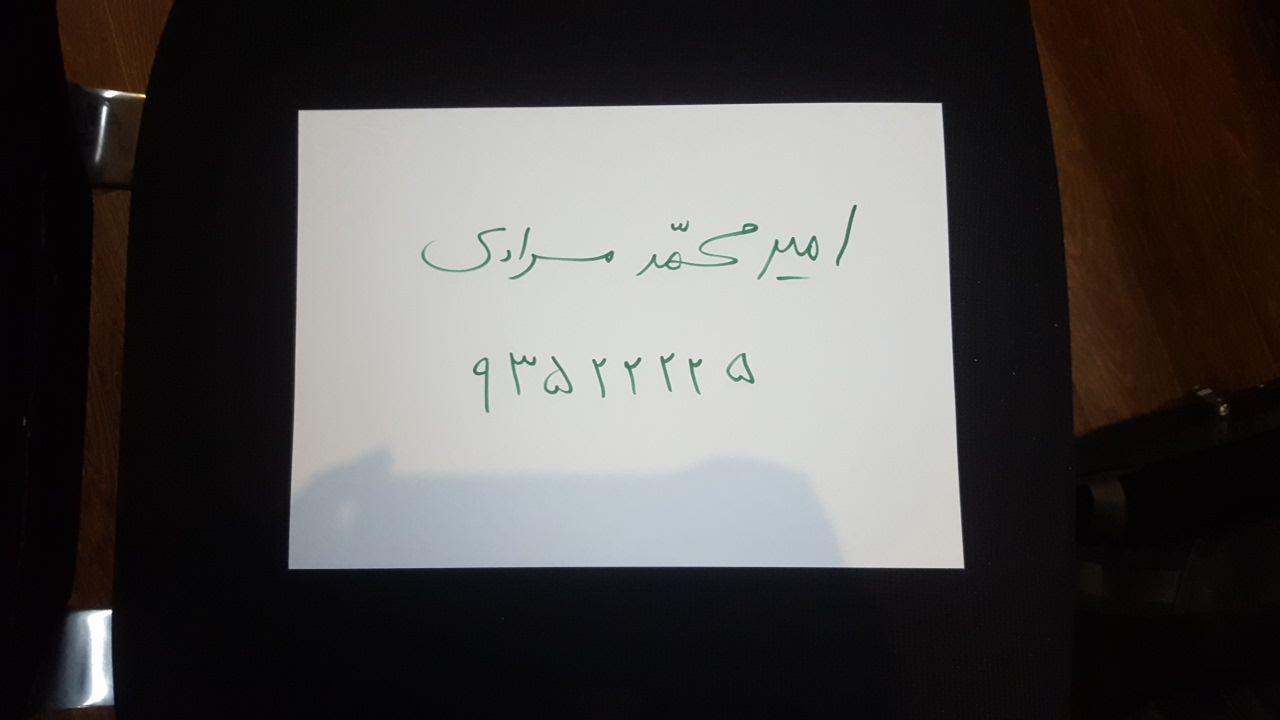 امیرمحمّد مرادی
۹۳۵۲۲۲۲۵